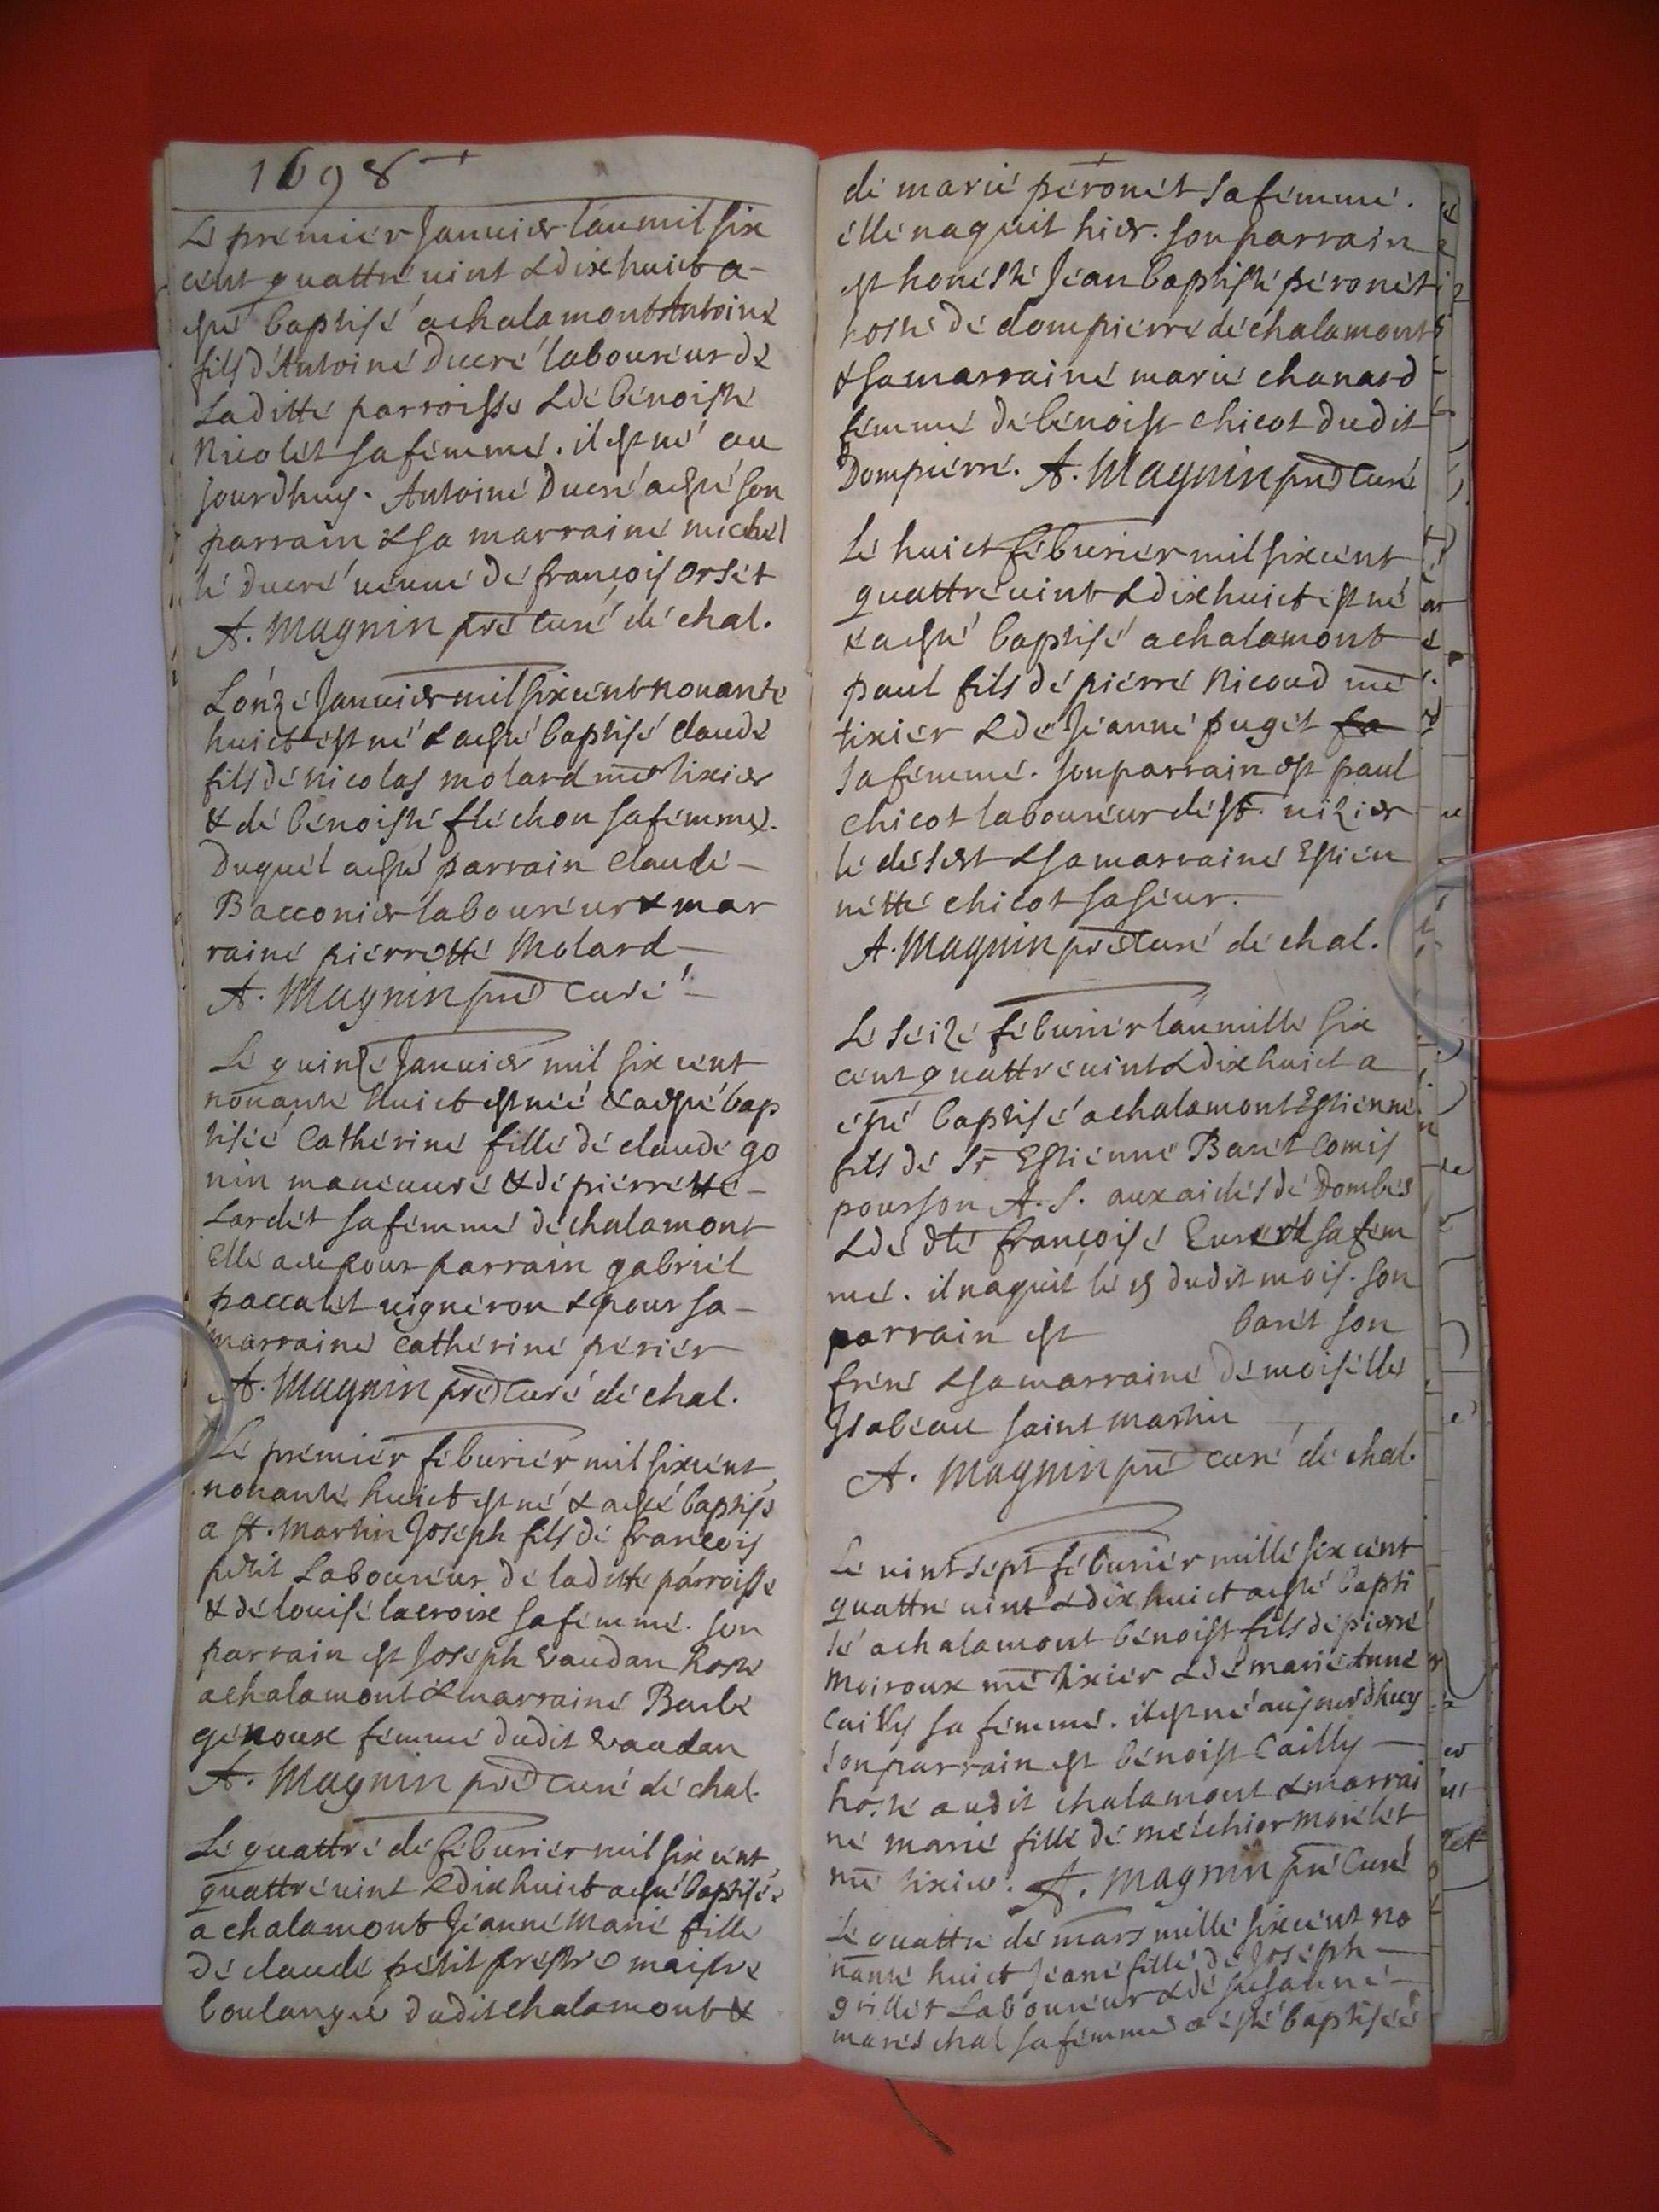 1698
Le premier Januier l'an mil six
cent quattre uint & dix huict a
esté baptisé a chalamont Antoine
fils d'Antoine Ducré laboureur de
Laditte parroisse & de benoiste
Nicolet sa femme. il est né au
jourdhuy. Antoine Ducré a esté son
parrain & sa marraine michel
le Ducré ueuue de françois orset
A. Magnin pre curé de chal.
L'onze Januier mil six cent nonante
huict est né & a esté baptisé claude
fils de Nicolas molard me tixier
& de benoiste fléchon sa femme.
Duquel a esté parrain claude
Bacconier laboureur & mar
raine pierrette Molard
A. Magnin pre curé
Le quinze Januier mil six cent
nonante huict est née & a esté bap
tisée Catherine fille de claude go
nin maneuure & de pierrette
Lardet sa femme de chalamont
Elle a eu pour parrain gabriel
paccalet uigneron & pour sa
marraine Catherine perier
A. Magnin pre curé de chal.
Le premier feburier mil six cent
nonante huict est né & a esté baptisé
a st. Martin Joseph fils de françois
petit Laboureur de laditte parroisse
& de louise lacroix sa femme. son
parrain est Joseph vaudan hoste
a chalamont & marraine Barbe
genoux femme dudit vaudan
A. Magnin pre curé de chal.
Le quattre de feburier mil six cent
quattre uint & dix huict a esté baptisée
a chalamont Jeanne Marie fille
de claude petit prestre maistre
boulanger dudit chalamont &
de marie peronet sa femme.
elle naquit hier. son parrain
est honeste Jean baptiste peronet
hoste de dompierre de chalamont
& sa marraine marie chanard
femme de benoist chicot dudit
Dompierre. A. Magnin pre Curé
Le huict feburier mil six cent
quattre uint & dix huict est né
& a esté baptisé a chalamont
paul fils de pierre Nicoud me
tixier & de Jeanne puget sa
sa femme. son parrain est paul
chicot laboureur de st. nizier
le desert & sa marraine Estien
nette chicot sa seur.
A. Magnin pre Curé de chal.
Le seize feburier l'an mille six
cent quattre uint & dix huict a
esté baptisé a chalamont Estienne
fils de Sr Estienne Baret Comis
pour son A. S. aux aides de Dombes
& de dlle françoise sa fem
me. il naquit le 15 dudit mois. son
parrain est baret son
frere & sa marraine demoiselle
Isabeau saint martin
A. Magnin pre curé de chal.
Le uint sept feburier mille six cent
quattre uint & dix huict a esté bapti
sé a chalamont benoist fils de pierre
Moiroux me tixier & de marie Anne
Cailly sa femme. il est né aujourdhuy
son parrain est benoist Cailly
hoste audit chalamont & marrai
ne marie fille de melchior morelet
me tixier. A. Magnin pre Curé
Le quattre de mars mille six cent no
nante huict Jeane fille de Joseph
grillet Laboureur & de susanne
mareschal sa femme a esté baptisée